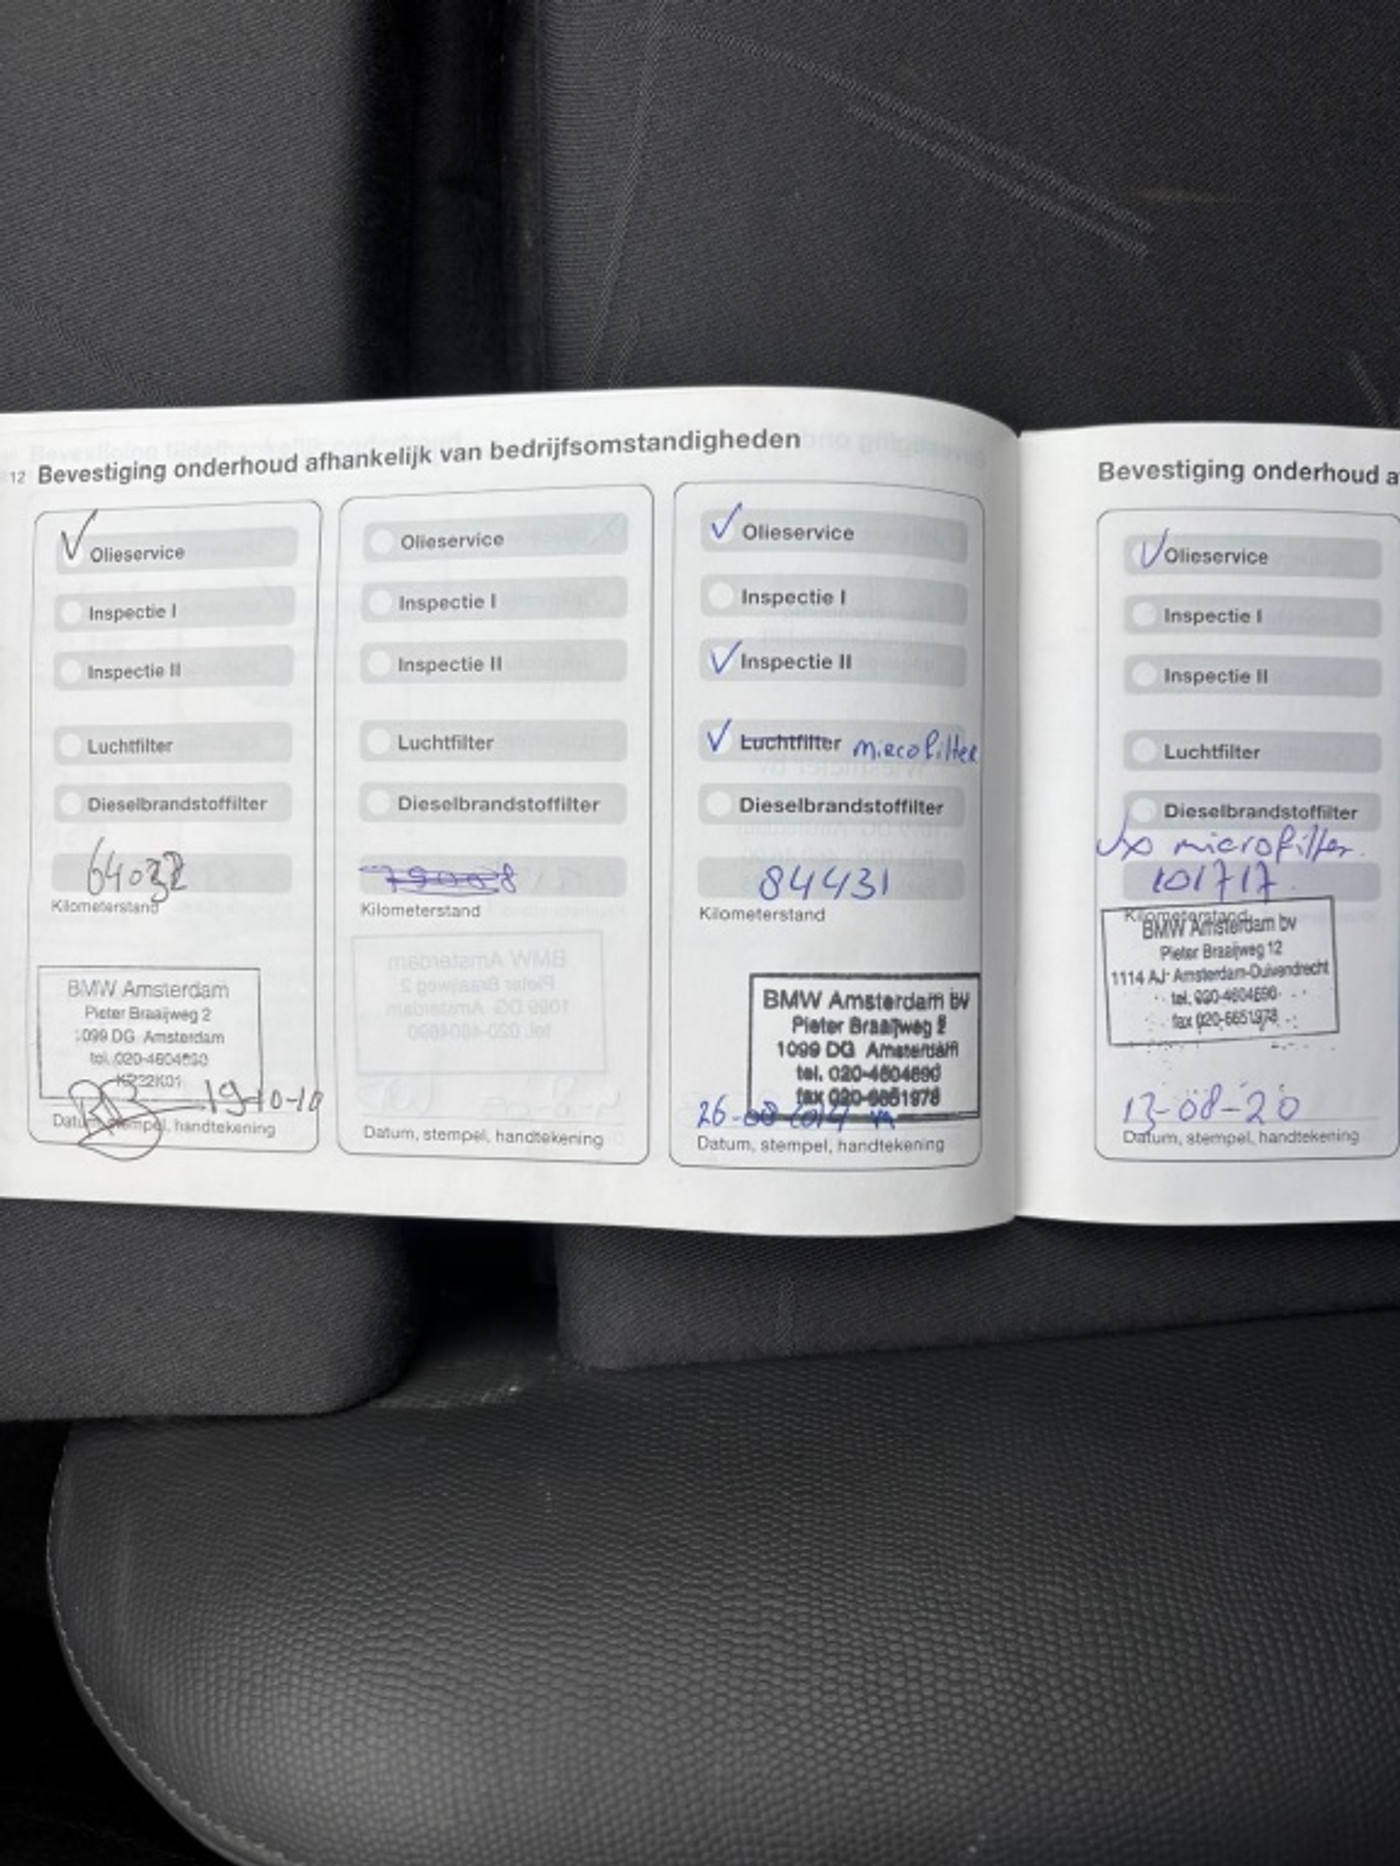 12 Bevestiging onderhoud afhankelijk van bedrijfsomstandigheden
Olieservice
Inspectie I
Inspectie II
Luchtfilter
Dieselbrandstoffilter
64032
Kilometerstand
BMW Amsterdam
Pieter Braaijweg 2
1099 DG Amsterdam
tel. 020-4604690
19-10-10
Datum, stempel, handtekening
Olieservice
Inspectie I
Inspectie II
Luchtfilter
Dieselbrandstoffilter
Kilometerstand
Datum, stempel, handtekening
Olieservice
Inspectie I
Inspectie II
Luchtfilter microfilter
Dieselbrandstoffilter
84431
Kilometerstand
BMW Amsterdam bv
Pieter Braaijweg 2
1099 DG Amsterdam
tel. 020-4604690
fax 020-6651978
26-08-2014
Datum, stempel, handtekening
Bevestiging onderhoud a
Olieservice
Inspectie I
Inspectie II
Luchtfilter
Dieselbrandstoffilter
microfilter
101717
Kilometerstand
BMW Amsterdam bv
Pieter Braaijweg 12
1114 AJ Amsterdam-Duivendrecht
tel. 020-4604690
fax 020-6651978
13-08-20
Datum, stempel, handtekening